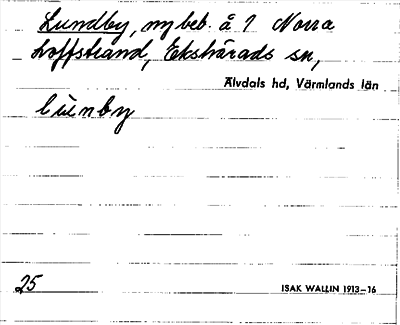 Lundby, ny beb. å 1 Norra
Loffstrand, Ekshärads sn,
Älvdals hd, Värmlands län
lu̇nby
25
ISAK WALLIN 1913–16